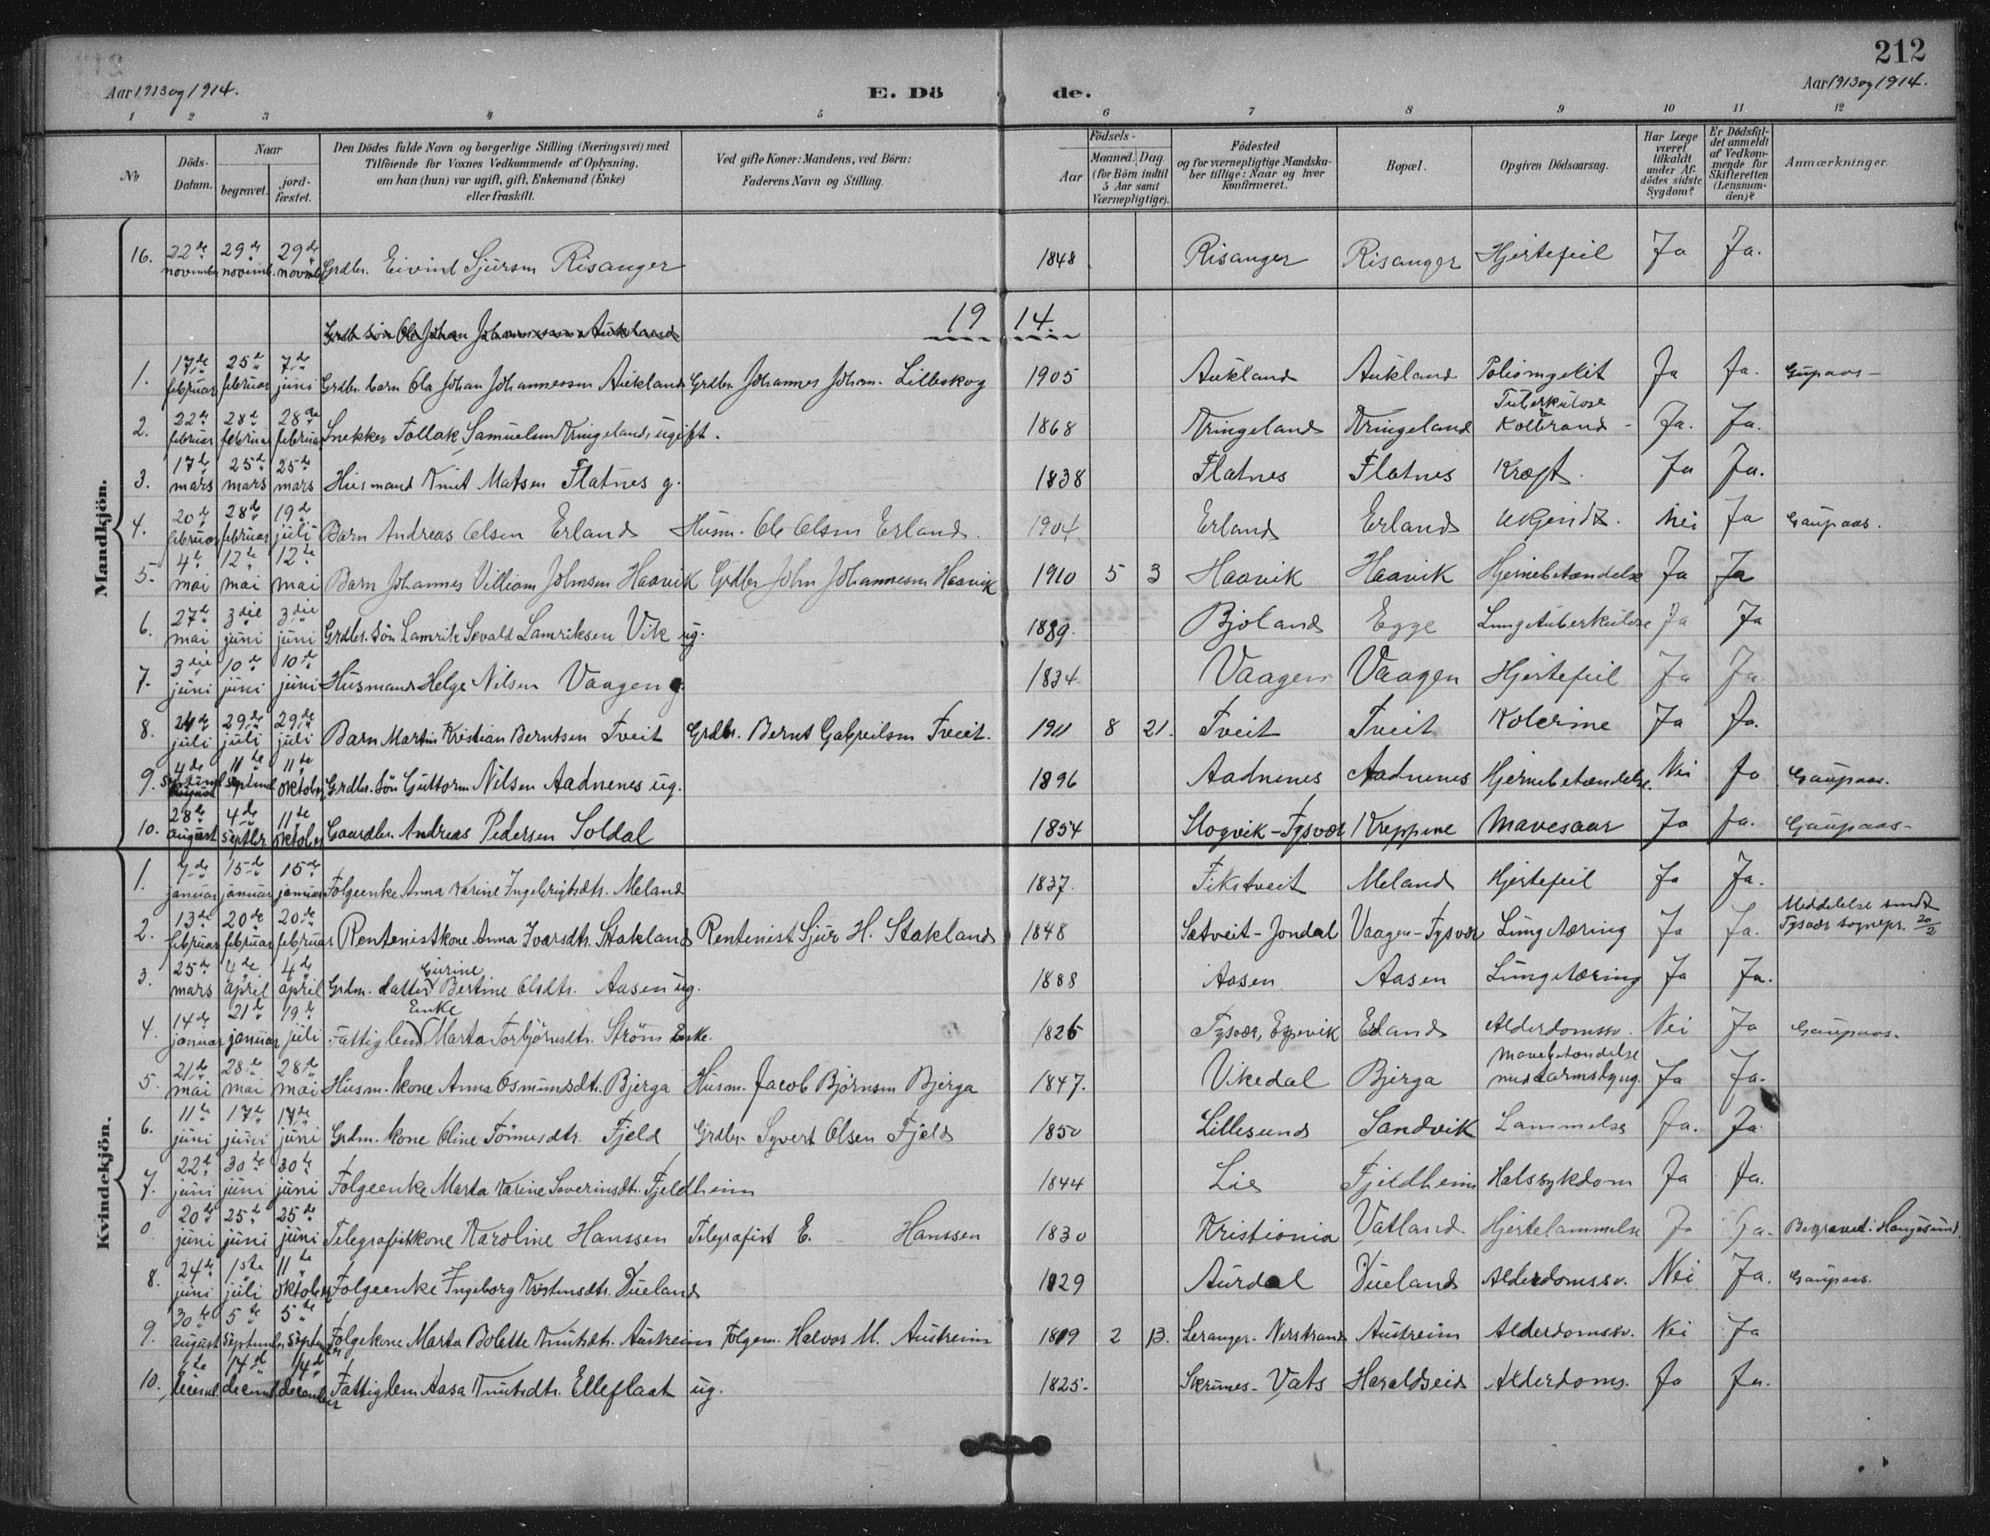 212
Aar 1913 og 1914.
E. Dö de.
Aar 1913 og 1914.
1 2 3 4 5 6 7 8 9 10 11 12
No
Döds-Datum.
Naar
begravet.
jord-fæstet.
Den Dödes fulde Navn og borgerlige Stilling (Næringsvei) med
Tilföiende for Voxnes Vedkommende af Oplysning,
om han (hun) var ugift, gift, Enkemand (Enke)
eller fraskilt.
Ved gifte Koner: Mandens, ved Börn:
Faderens Navn og Stilling.
Födsels-
Aar
Maaned. Dag.
(for Börn indtil
5 Aar samt
Værnepligtige).
Födested
og for værnepligtige Mandska-
ber tillige: Naar og hvor
konfirmeret.
Bopæl.
Opgiven Dödsaarsag.
Har Læge
været
tilkaldt
under Af-
dödes sidste
Sygdom?
Er Dödsfal-
det anmeldt
af Vedkom-
mende for
Skifteretten
(Lensman-
den)?
Anmærkninger.
Mandkjön.
16. 22de november 29de novemb. 29de novemb. Grdbr. Eivind Sjursen Risanger 1848 Risanger Risanger Hjertefeil Ja Ja.
Grdb. sön Ole Johan Johannessen Aukland
1914
1. 17de februar 25de februar 7de juni Grdbr. barn Ola Johan Johannessen Aukland Grdbr. Johannes Johan. Lilleskog 1905 Aukland Aukland Ja Ja.
2. 22de februar 28de februar 28de februar Snekker Tollak Samuelsen Kringeland, ugift. 1868 Kringeland Kringeland Tuberkulose Kolbrand Ja. Ja.
3. 17de mars 25de mars 25de mars Husmand Knut Matsen Flatnes g. 1838 Flatnes Flatnes Kræft. Ja Ja.
4. 20de februar 28de februar 19de juli Barn Andreas Olsen Erland Husm. Ole Olsen Erland. 1904 Erland Erland Ukjendt. Nei Ja Gaupaas.
5. 4de mai 12te mai 12te mai Barn Johannes Villiam Johnsen Haavik Grdbr. John Johannesen Haavik 1910 5 3 Haavik Haavik Hjernebetændelse Ja Ja
6. 27de mai 3die juni 3die juni Grdbr. sön Lamrik Sevald Lamriksen Vik ug. 1889. Bjoland Egge Lungetuberkulose Ja Ja
7. 3die juni 10de juni 10de juni Husmand Helge Nilsen Vaagen g. 1834 Vaagen Vaagen Hjertefeil Ja Ja.
8. 21de juli 29de juli 29de juli Barn Martin Kristian Berntsen Tveit Grdbr. Bernt Gabrielsen Tveit. 1911 8 21. Tveit Tveit Kolerine Ja Ja.
9. 4de septemb 11te septemb 11te oktober Grdbr. sön Guttorm Nilsen Aadnenes ug. 1896 Aadnenes Aadnenes Hjernebetændelse. Nei Ja Gaupaas.
10. 28de august 4de septbr. 11te oktober Gaardbr. Andreas Pedersen Soldal 1854 Slogvik - Tysvær Kreppene Mavesaar Ja Ja. Gaupaas -
Kvindekjön.
1. januar 15de januar 15de januar Folgeenke Anna Karine Ingebrigtsdtr. Meland 1837. Fikstveit Meland Hjertefeil Ja Ja.
2. 13de februar 20de februar 20de februar Rentenistkone Anna Ivarsdtr. Stakland Rentenist Sjur H. Stakland 1848 Sætveit - Jondal Vaagen - Tysvær Lungetæring Ja Ja. Meddelelse sendt Tysvær sognepr. 20/2
3. 25de mars 4de april 4de april Grdm. datter Gurine Bertine Olsdtr. Aasen ug. 1888 Aasen Aasen Lungetæring Ja Ja.
4. 14de januar 21de januar 19de juli Fattiglem Enke Marta Torbjörnsdtr. Ström Enke. 1826 Tysvær, Espevik Erland Alderdomssv. Nei Ja Gaupaas.
5. 21de mai 28de mai 28de mai Husm. kone Anna Osmundsdtr. Bjerga Husm. Jacob Björnsen Bjerga 1847. Vikedal Bjerga Mavebetændelse med tarmslyng. Ja Ja.
6. 11te juni 17de juni 17de juni Grdm. kone Oline Tönnesdtr. Fjeld Grdbr. Syvert Olsen Fjeld 1850 Lillesund Sandvik Lammelse Ja. Ja.
7. 22de juni 30te juni 30te juni Folgeenke Marta Karine Saverinsdtr. Fjeldheim 1844 Lie Fjeldheim Halssykdom Ja Ja.
0 20de juni 25de juni 25de juni Telegrafistkone Karoline Hanssen Telegrafist E. Hanssen 1830 Kristiania Vatland Hjertelammelse Ja Ja. Begravet i Haugesund.
8. 24de juni 1ste juli 11te oktober Folgeenke Ingeborg Kristensdtr. Dueland 1829 Aurdal Dueland Alderdomssv. Nei Ja. Gaupaas.
9. 30te august 5te september 5te septem Folgekone Marta Bolette Knutsdtr. Austreim Folgem. Halvor M. Austreim 1819 2 13. Leranger - Nerstrand Austreim Alderdomssv. Nei Ja
10. 6te decemb 14de decemb 14de december Fattiglem Aasa Knutsdtr. Elleflaat ug. 1825. Skrunes - Vats Haraldseid Alderdoms. Ja Ja.